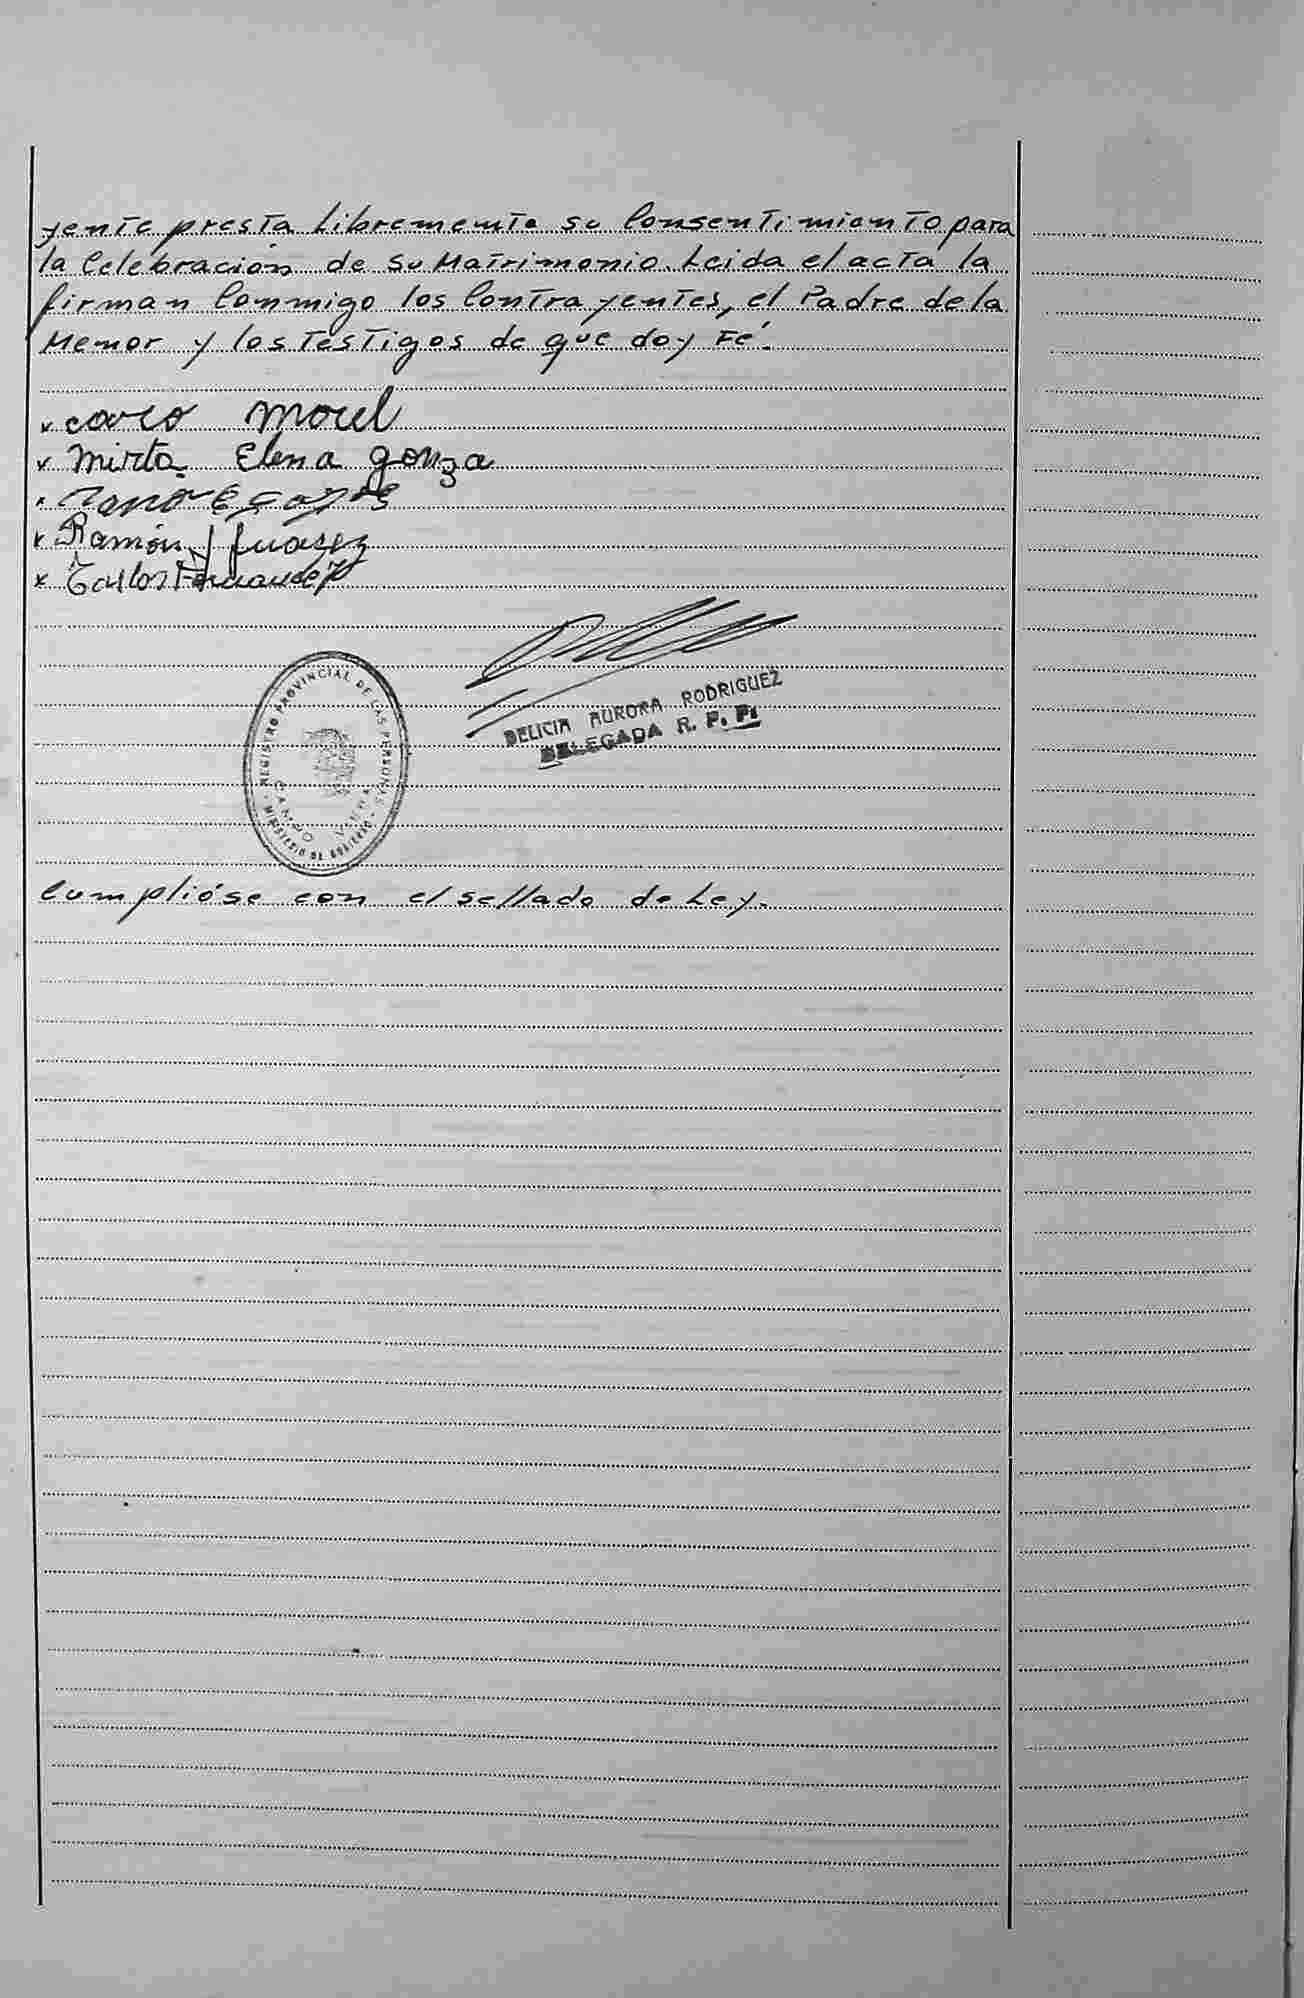 yente presta Libremente su Consentimiento para
la Celebración de su Matrimonio. Leida el acta la
firman Conmigo los Contrayentes, el Padre de la
Menor y los Testigos de que doy Fé.
x morel
x mirta Elena gonza
x
x Ramón J Juarez
x Carlos Fernandez
REGISTRO PROVINCIAL DE LAS PERSONAS
CAMPO VERA
MINISTERIO DE GOBIERNO
DELICIA AURORA RODRIGUEZ
DELEGADA R. P. P.
Cumplióse con el sellado de Ley.